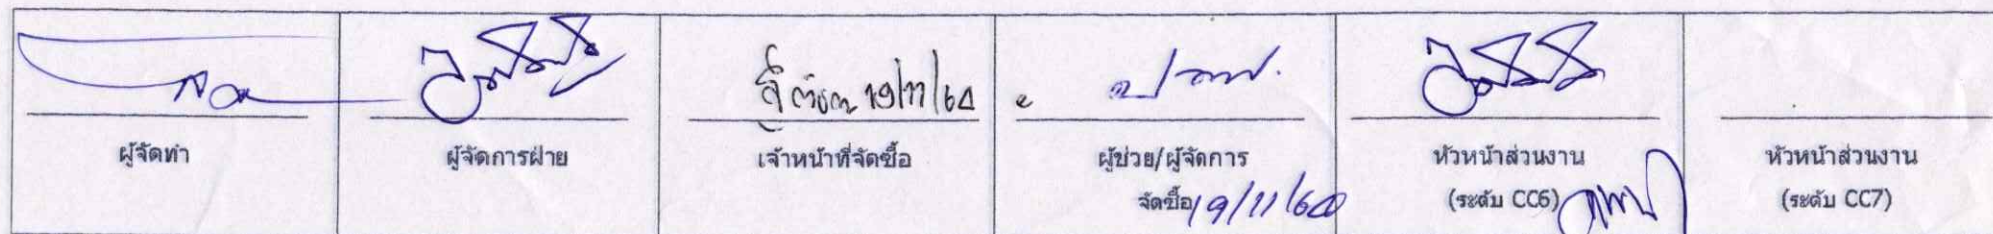 19/11/60
ผู้จัดทำ
ผู้จัดการฝ่าย
เจ้าหน้าที่จัดซื้อ
ผู้ช่วย/ผู้จัดการ
จัดซื้อ 19/11/60
หัวหน้าส่วนงาน
(ระดับ CC6)
หัวหน้าส่วนงาน
(ระดับ CC7)